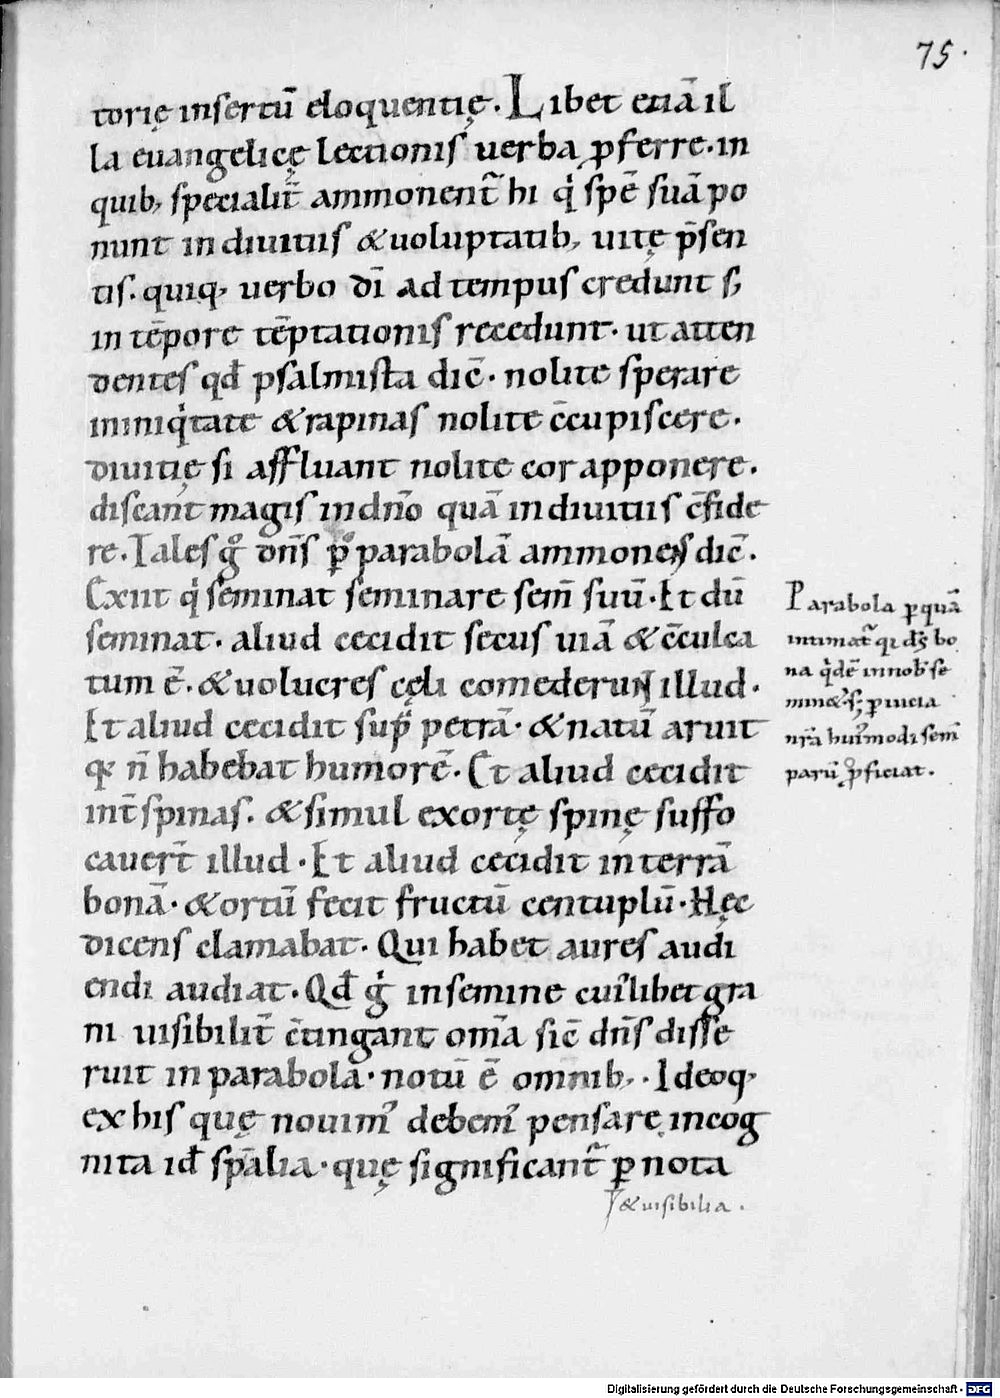 75.
torię insertū eloquentię. Libet etiā il
la euangelicę lectionis uerba ꝓferre. in
quib; specialit̄ ammonent᷑ hi qͥ spē suā po
nunt in diuitiis & uoluptatib; uitę p̄sen
tis. quiq; uerbo dī ad tempus credunt s;
in tēpore tēptationis recedunt. ut atten
dentes qđ psalmista dic̄. nolite sperare
in iniqͥtate & rapinas nolite c̄cupiscere.
diuitię si affluant nolite cor apponere.
discant magis in dn̄o quā in diuitiis c̄fide
re. Tales gͦ dn̄s ꝑ parabolā ammonens dic̄.
Exiit qͥ seminat seminare sem̄ suū. Et dū
seminat. aliud cecidit secus uiā & c̄culca
tum ē. & uolucres cęli comederunt illud.
Et aliud cecidit sup̄ petrā. & natū aruit
q; n̄ habebat humorē. Et aliud cecidit
int̄ spinas. & simul exortę spinę suffo
cauer̄t illud. Et aliud cecidit in terrā
bonā. & ortū fecit fructū centuplū. Hęc
dicens clamabat. Qui habet aures audi
endi audiat. Qđ gͥ in semine cuiꝰlibet gra
ni uisibilit̄ c̄tingant om̄a sic̄ dn̄s disse
ruit in parabola. notū ē omnib;. Ideoq;
ex his quę nouimꝰ debemꝰ pensare incog
nita id̄ sp̄alia. quę significant᷑ ꝑ nota
& uisibilia.
Parabola ꝑ quā
intimat᷑ qͥ dꝫ bo
na qͥdē in nob̄ se
minet᷑. s; ꝑ uicia
nr̄a huiꝰmodi sem̄
parū ꝓficiat.
Digitalisierung gefördert durch die Deutsche Forschungsgemeinschaft - DFG